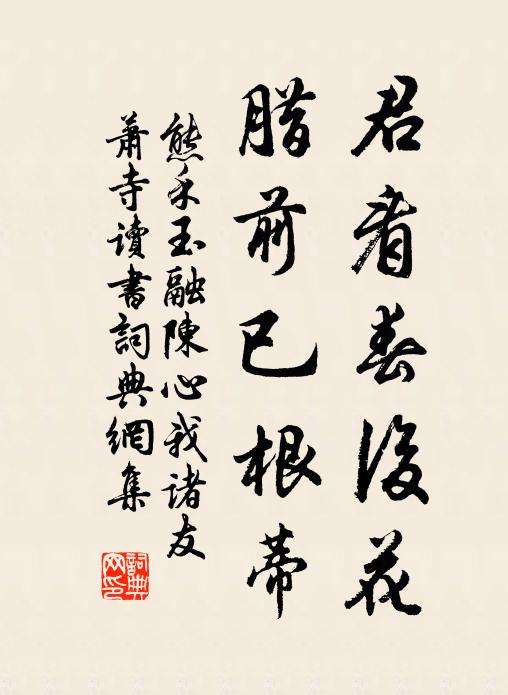 君看春後花
腊前已根蒂
熊禾玉融陳心我諸友
蕭寺讀書詞典網集
詞典网印